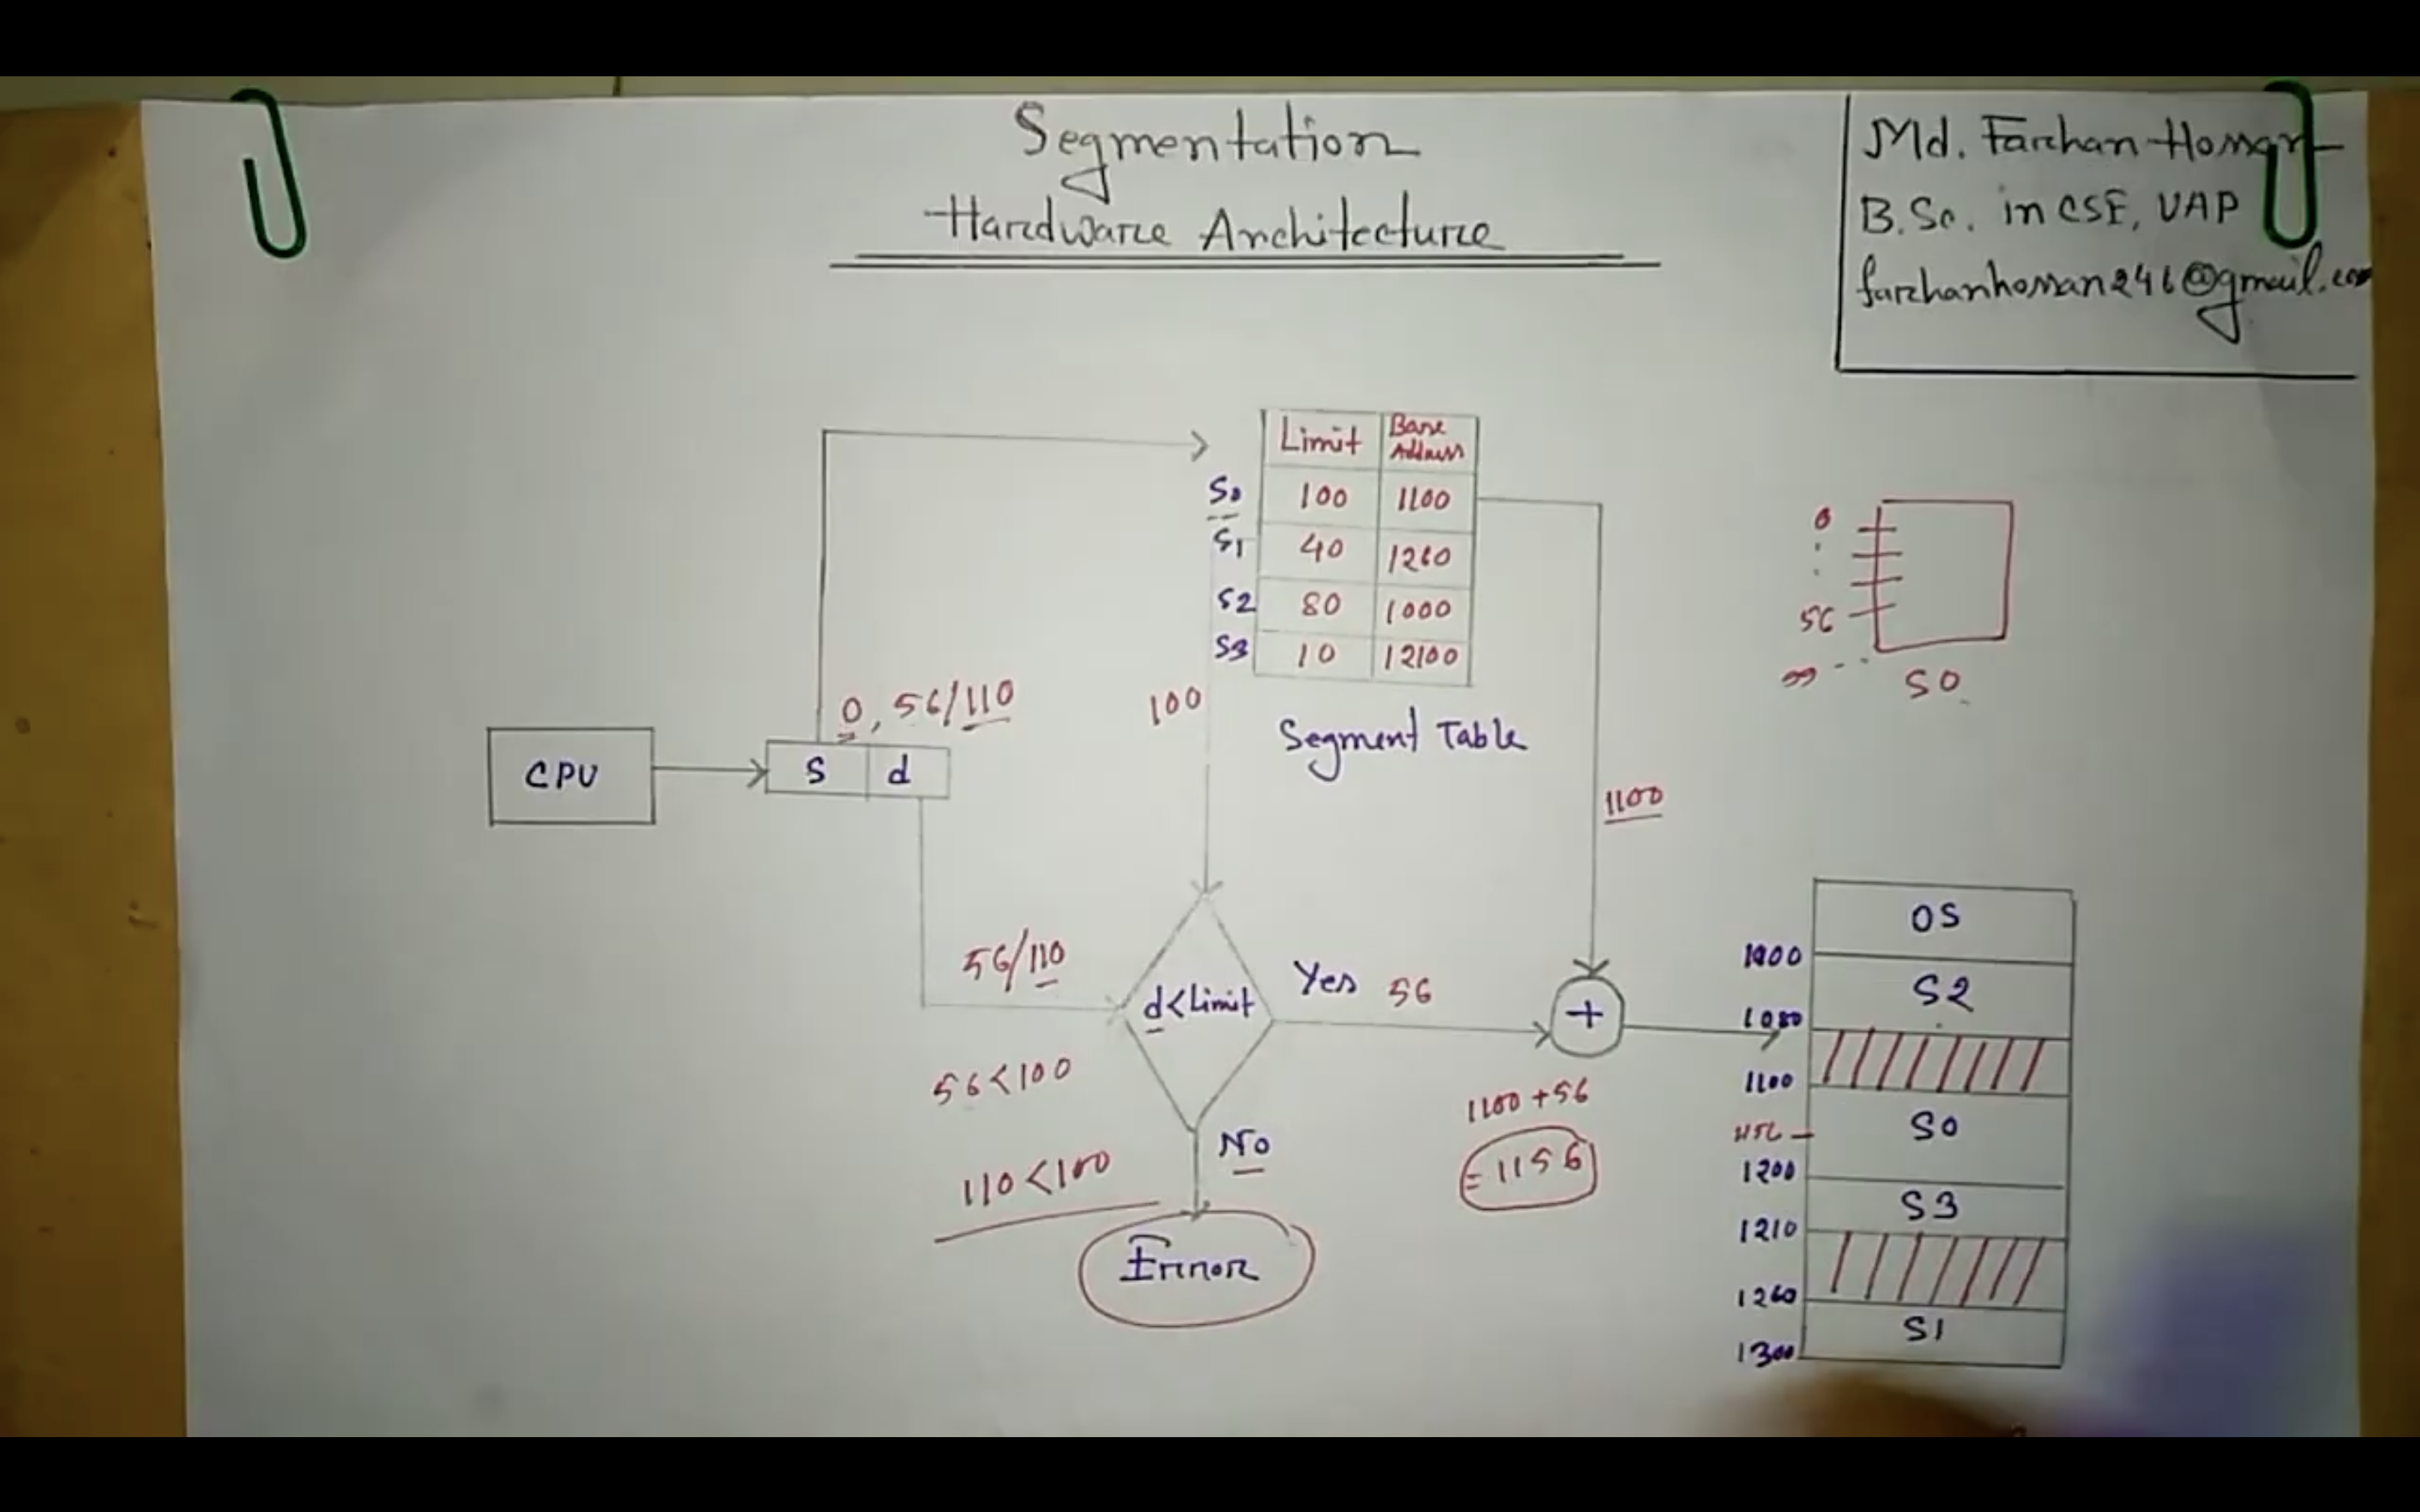 Segmentation
Hardware Architecture
Md. Farhan Hossan
B.Sc. in CSE, UAP
farhanhossan246@gmail.com
Limit Base Address
S0 100 1100
S1 40 1260
S2 80 1000
S3 10 12100
Segment Table
0
56
99
S0
0, 56/110
100
CPU
S d
1100
56/110
d<Limit
Yes 56
+
56<100
110<100
No
Error
1100+56
=1156
OS
1000
S2
1080
1100
S0
1156
1200
S3
1210
1260
S1
1300